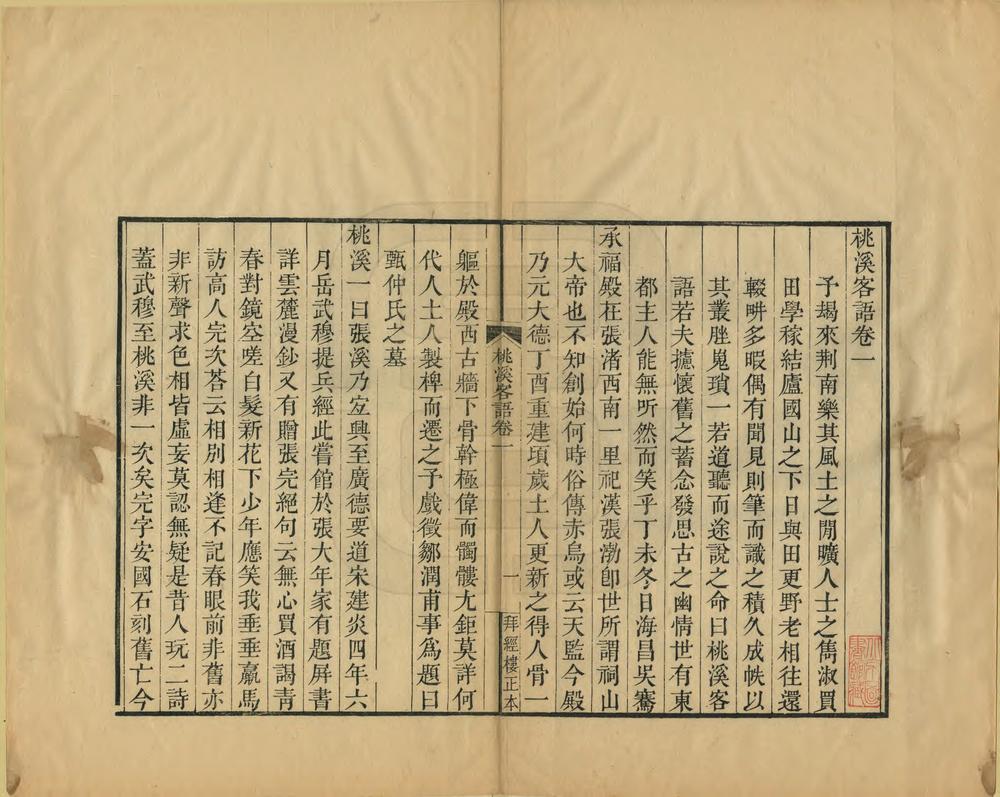 桃溪客語卷一
予朅來荆南樂其風土之閒曠人士之雋淑買
田學稼結廬國山之下日與田更野老相往還
輟畊多暇偶有聞見則筆而識之積久成帙以
其叢脞嵬瑣一若道聽而途說之命曰桃溪客
語若夫攄懷舊之蓄念發思古之幽情世有東
都主人能無听然而笑乎丁未冬日海昌吳騫
承福殿在張渚西南一里祀漢張渤卽世所謂祠山
大帝也不知創始何時俗傳赤烏或云天監今殿
乃元大德丁酉重建頃歲土人更新之得人骨一
桃溪客語卷一
一
拜經樓正本
軀於殿西古牆下骨幹極偉而髑髏尤鉅莫詳何
代人土人製椑而遷之予戲徵鄒潤甫事爲題曰
甄仲氏之墓
桃溪一曰張溪乃宐興至廣德要道宋建炎四年六
月岳武穆提兵經此嘗館於張大年家有題屏書
詳雲麓漫鈔又有贈張完絕句云無心買酒謁靑
春對鏡空嗟白髮新花下少年應笑我垂垂羸馬
訪高人完次荅云相別相逢不記春眼前非舊亦
非新聲求色相皆虛妄莫認無疑是昔人玩二詩
蓋武穆至桃溪非一次矣完字安國石刻舊亡今